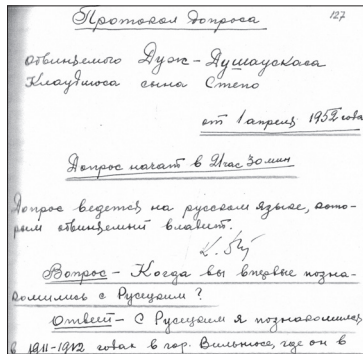 127
Протокол допроса
обвиняемого Дуж-Душаускаса
Клаудиоса сына Степо
от 1 апреля 1952 года
Допрос начат в 21 час 30 мин
Допрос ведется на русском языке, кото-
рым обвиняемый владеет.
Вопрос – Когда вы впервые позна-
комились с Русецким?
Ответ – С Русецким я познакомился
в 1911-1912 годах в гор. Вильнюсе, где он в